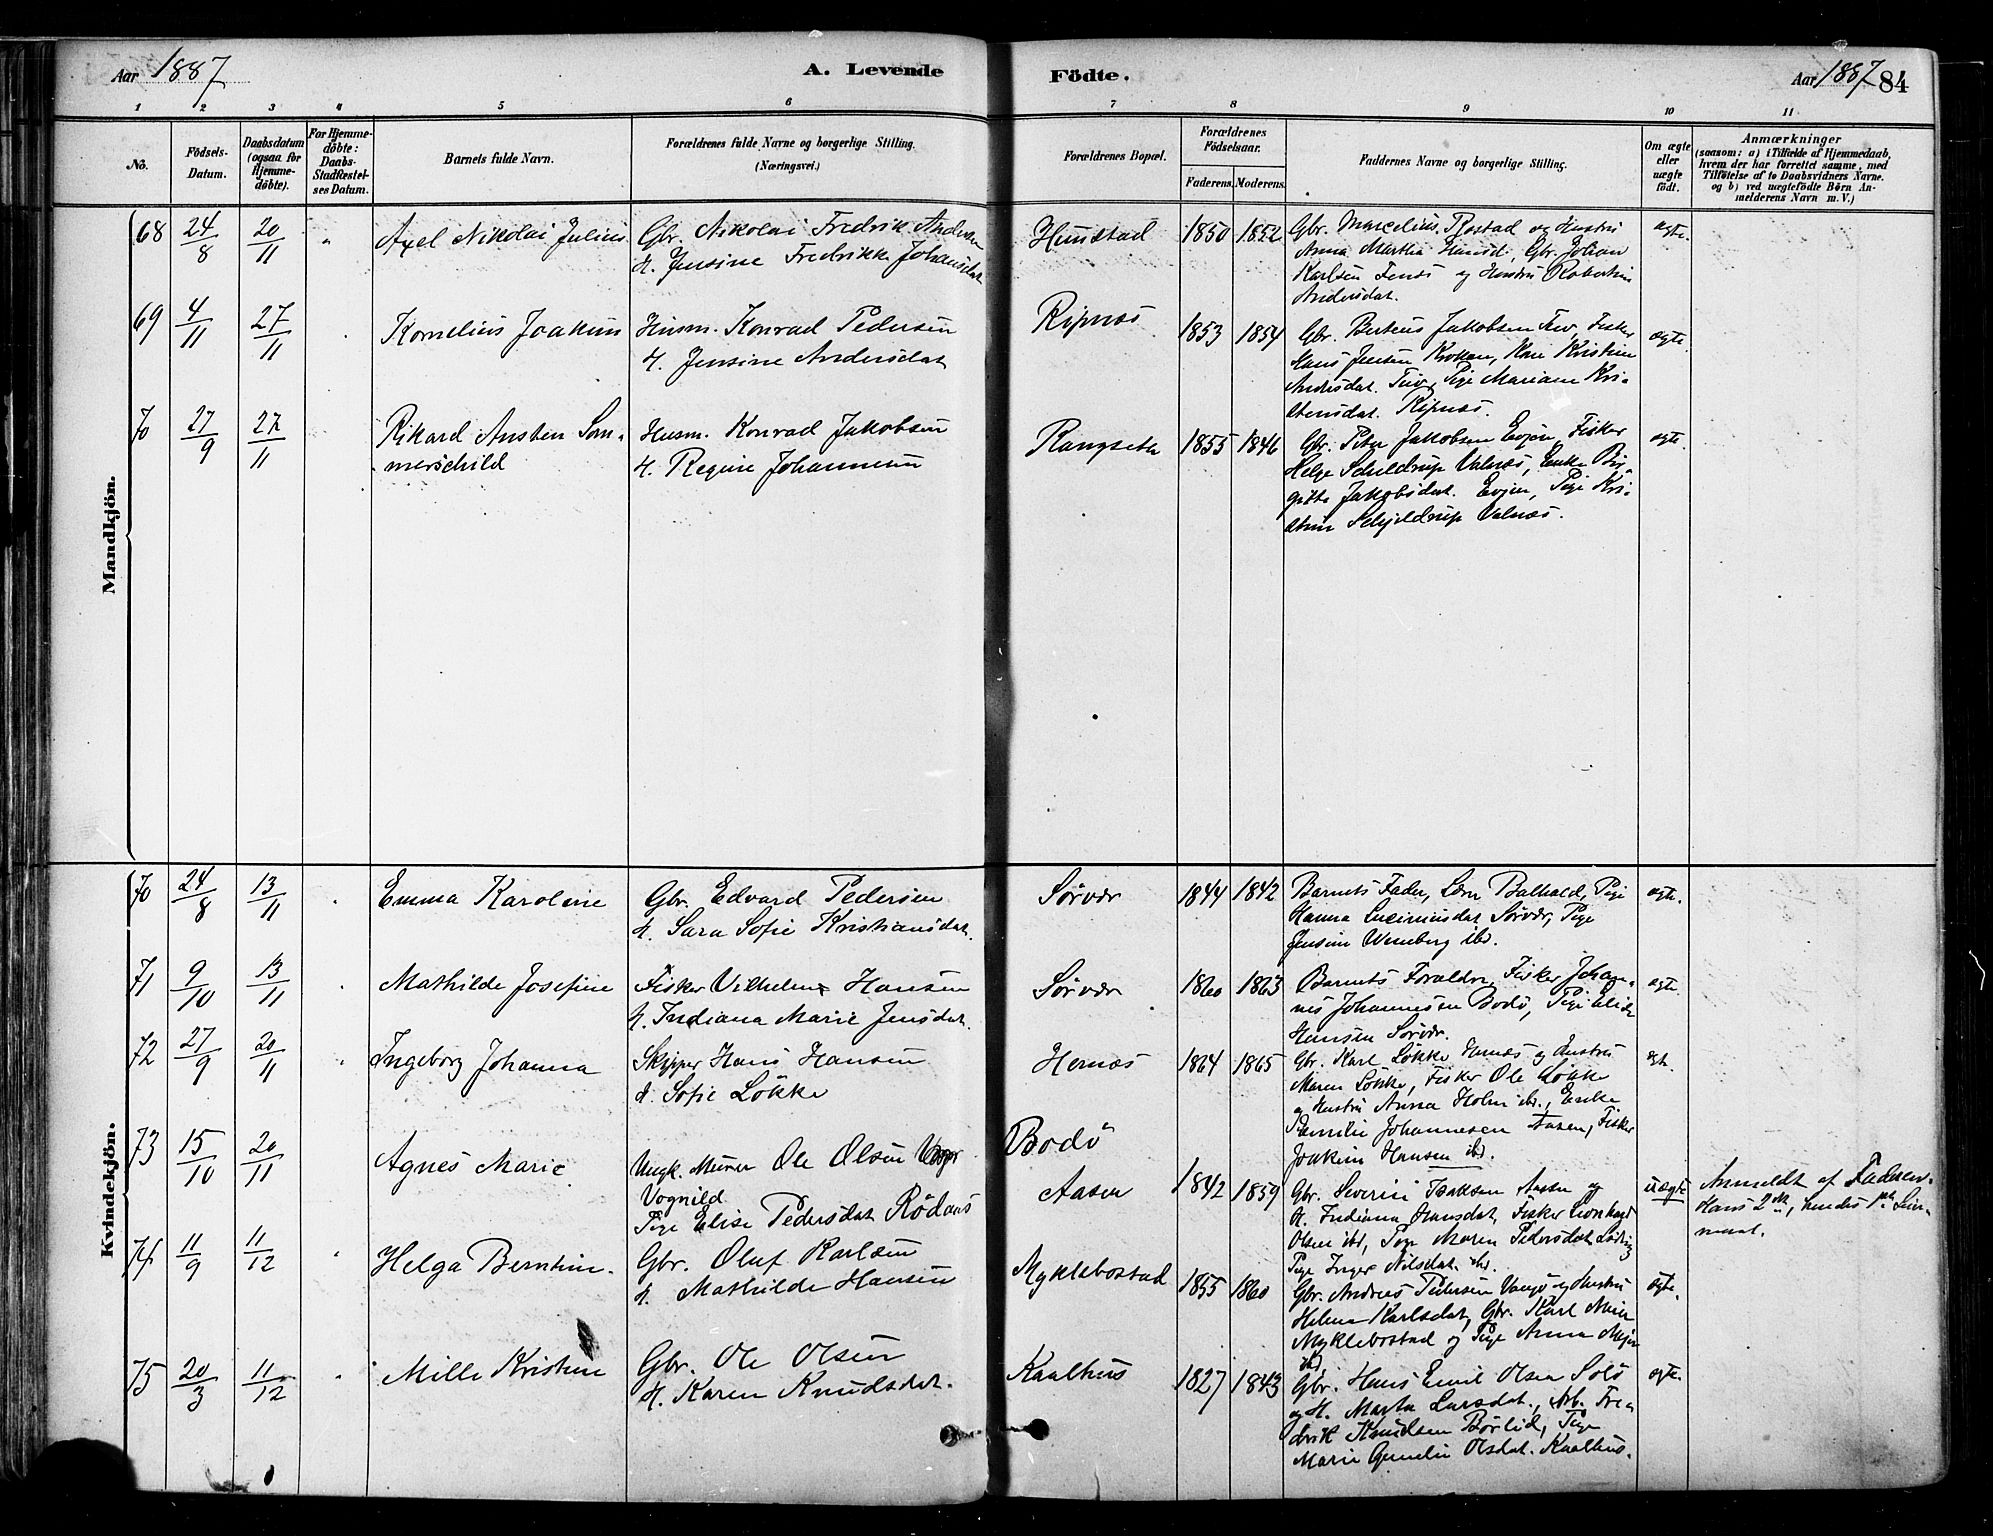 Aar 1887
A. Levende
Födte.
Aar 1887 84
1 2 3 4 5 6 7 8 9 10 11
No.
Födsels-Datum.
Daabsdatum (ogsaa for Hjemme-döbte).
For Hjemme-döbte: Daabs-Stadfæstel-ses Datum.
Barnets fulde Navn.
Forældrenes fulde Navne og borgerlige Stilling.
(Næringsvei.)
Forældrenes Bopæl.
Forældrenes Födselsaar.
Faderens. Moderens.
Faddernes Navne og borgerlige Stilling.
Om ægte eller uægte födt.
Anmærkninger
(saasom: a) i Tilfælde af Hjemmedaab,
hvem der har forrettet samme, med
Tilföielse af to Daabsvidners Navne.
og b) ved uægtefödte Börn An-
melderens Navn m. V.)
Mandkjön.
68 24/8 20/11 " Axel Nikolai Julius
Gbr. Nikolai Fredrik Andersen
H. Jensine Fredrikke Johansdat
Hunstad 1850 1852
Gbr. Marcelius Rostad og Hustru
Anna Martha Hansd., Gbr. Johan
Karlsen Fenes og Hustru Robertine
Andersdat.
ægte.
69 4/11 27/11 Kornelius Joakim
Husm. Konrad Pedersen
H. Jensine Andersdat
Ripnæs 1853 1854
Gbr. Berteus Jakobsen Fisker
Hans Jensen Kroken, Kone Kristine
Andersdat. Pige Mariane Kri-
stensdat. Ripnæs.
ægte.
70 27/9 27/11 Rikard Austen Som-
merschild
Husm. Konrad Jakobsen
H. Regine Johannesen
Rangsæth 1855 1846
Gbr. Peter Jakobsen Evjen, Fisker
Helge Schjeldrup Valnæs, Enke Bir-
gitte Jakobsdat. Evjen, Pige Kri-
stine Schjeldrup Valnæs.
ægte
Kvindekjön.
70 24/8 13/11 Emma Karoline
Gbr. Edvard Pedersen
H. Sara Sofie Kristiansdat.
Sørvær 1844 1842
Barnets Fader, Pige
Hanna Sørvær, Pige
Jensine Wenberg ibd.
ægte.
71 9/10 13/11 Mathilde Josefine
Fisker Vilhelm Hansen
H. Indiana Marie Jensdat.
Sørvær 1860 1863
Barnets Foræeldre, Fisker Johan-
nes Johannesen Bodø, Pige Elide
Hansen Sørvær.
ægte.
72 27/9 20/11 Ingeborg Johanna
Skipper Hans Hansen
H. Sofie Løkke
Hernæs 1864 1865
Gbr. Karl Løkke Hernæs og Hustru
Maren Løkke, Fisker Ole Løkke
og Hustru Anna Holm ibd., Enke
Emilie Johannesen Aasen, Fisker
Joakim Hansen ibd.
ægte.
73 15/10 20/11 Agnes Marie
Ungk. Murer Ole Olsen
Vognild
Pige Elise Pedersdat Rödaas
Bodö
Aasen 1842 1859
Gbr. Severin Isaksen Aasen og
H. Indiana Hansdat, Fisker Leonhard
Olsen ibd, Pige Maren Pedersdat
Pige Inger Nilsdat. ibd.
uægte
Anmeldt af Faderen.
Hans 2det, hendes 1ste Leier-
maal.
74 11/9 11/12 Helga Berntine.
Gbr. Oluf Karlsen
H. Mathilde Hansen
Myklebostad 1855 1860
Gbr. Andreas Pedersen og Hustru
Helena Karlsdat, Gbr. Karl
Myklebostad og Pige Anna
ibd.
ægte.
75 20/3 11/12 Mille Kristine
Gbr. Ole Olsen
H. Karen Knudsdat.
Kaalhus 1827 1843
Gbr. Hans Emil Olsen
og H. Marta Larsdat., Arb. Fre-
drik Knudsen Børlid, Pige
Marie Olsdat. Kaalhus.
ægte.